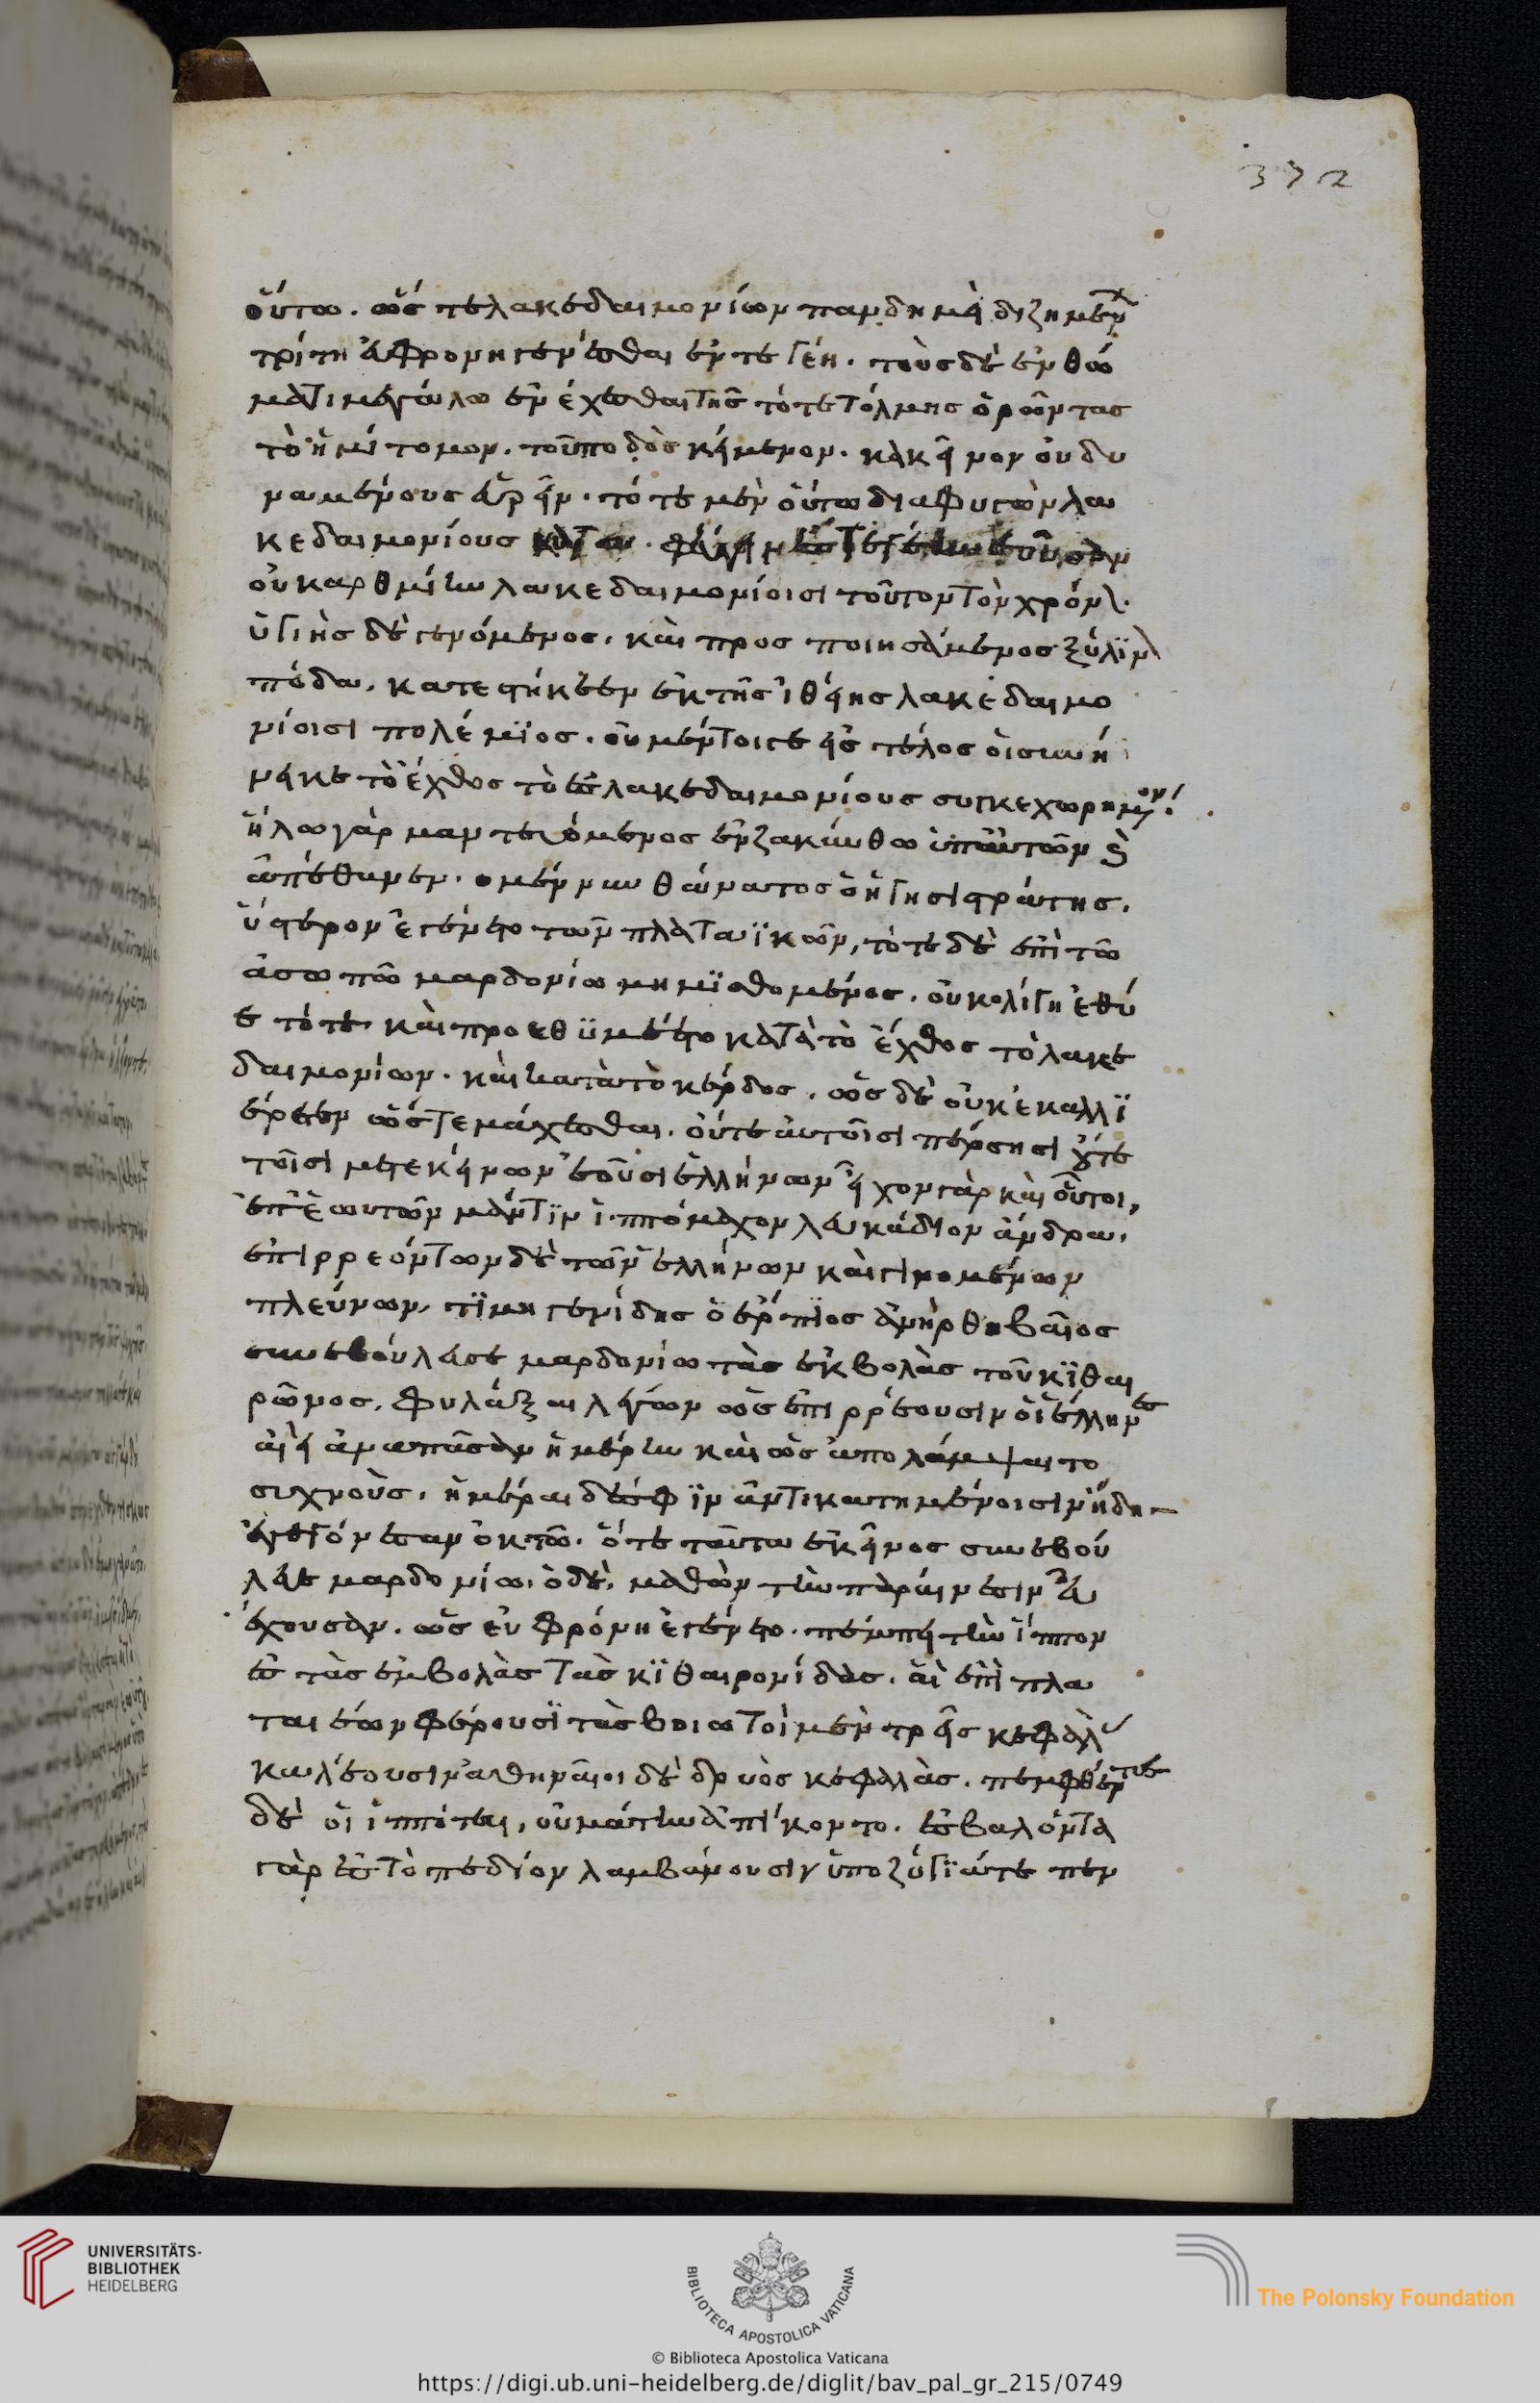 372
οὕτω. ὥς τε λακεδαιμονίων πανδημεὶ διζημένων
τρίτη ἐυφρόνη γενέσθαι ἐν τεγέη. τοὺς δὲ ἐν θώ
ματι μεγάλω ἐνέχεσθαι τῆς τότε τόλμης ὁρῶντας
τὸ ἡμίτομον. τοῦ ποδὸς κείμενον. κἀκεῖνον οὐ δυ
ναμένους εὑρεῖν. τότε μὲν οὕτω διαφυγὼν λα
κεδαιμονίους κατα φεύγει ἐς τεγέην ἐοῦσαν
οὐκ ἀρθμίην λακεδαιμονίοισι τοῦτον τὸν χρόνον.
ὑγιὴς δὲ γενόμενος. καὶ προσποιησάμενος ξύλινον
πόδα, κατεστήκεεν ἐκ τῆς ἰθείης λακεδαιμο
νίοισι πολέμιος. οὐ μέντοι γε εἰς τέλος οἱ συνή
νεικε τὸ ἔχθος τὸ ἐς λακεδαιμονίους συγκεχωρημένον.
ἥλω γὰρ μαντευόμενος ἐν ζακύνθω ὑπ' αὐτῶν καὶ
ἀπέθανεν. ὁ μέν νυν θάνατος ὁ ἡγησιστράτης.
ὕστερον ἐγένετο τῶν πλαταιϊκῶν, τότε δὲ ἐπὶ τῶ
ἀσωπῶ μαρδονίω μεμισθωμένος. οὐκ ὀλίγη ἐθύ
ε τότε καὶ προεθυμέετο κατὰ τὸ ἔχθος τὸ λακε
δαιμονίων. καὶ κατὰ τὸ κέρδος. ὡς δὲ οὐκ ἐκαλλι
έρεεν ὥστε μάχεσθαι. οὔτε αὐτοῖσι πέρσησι οὔτε
τοῖσι μετ' ἐκείνων ἐοῦσι ἑλλήνων εἶχον γὰρ καὶ οὗτοι,
ἐπ' ἑωυτῶν μάντιν ἱππόμαχον λευκάδιον ἄνδρα.
ἐπιρρεόντων δὲ τῶν ἑλλήνων καὶ γινομένων
πλεύνων, τιμηγενίδης ὁ ἕρπιος ἀνὴρ θηβαῖος
συνεβούλευσε μαρδονίω τὰς ἐκβολὰς τοῦ κιθαι
ρῶνος. φυλάξαι λέγων ὡς ἐπιρρέουσιν οἱ ἕλληνες
αἰεὶ ἀνὰ πᾶσαν ἡμέρην καὶ ὡς ἀπολάμψαιτο
συχνοὺς. ἡμέραι δέ σφιν ἀντικατημένοισιν ἤδη
ἐγεγόνεσαν ὀκτώ. ὅτε ταῦτα ἐκεῖνος συνεβού
λευε μαρδονίω. ὁ δὲ, μαθὼν τὴν παραίνεσιν εὖ
ἔχουσαν. ὡς εὐφρόνη ἐγένετο. πέμπει τὴν ἵππον
ἐς τὰς ἐμβολὰς τὰς κιθαιρονίδας. αἳ ἐπὶ πλα
ταιέων φέρουσι τὰς βοιωτοὶ μὲν τρεῖς κεφαλὰς
καλέουσιν ἀθηναῖοι δὲ δρυὸς κεφαλὰς. πεμφθέντες
δὲ οἱ ἱππόται, οὐ μάτην ἀπίκοντο. ἐσβαλόντα
γὰρ ἐς τὸ πεδίον λαμβάνουσιν ὑποζύγιά τε πεν
UNIVERSITÄTS-
BIBLIOTHEK
HEIDELBERG
BIBLIOTECA APOSTOLICA VATICANA
The Polonsky Foundation
© Biblioteca Apostolica Vaticana
https://digi.ub.uni-heidelberg.de/diglit/bav_pal_gr_215/0749